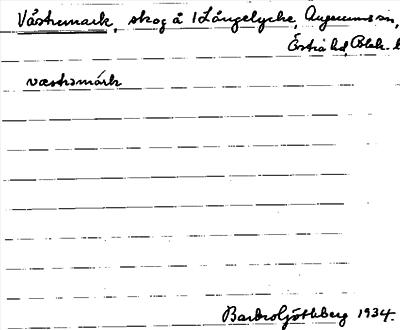 Våstremark, skog å 1 Långelycke, Augerums sn,
Östra hd, Blek. l
væstrəmárk
Barbro Götheberg 1934.